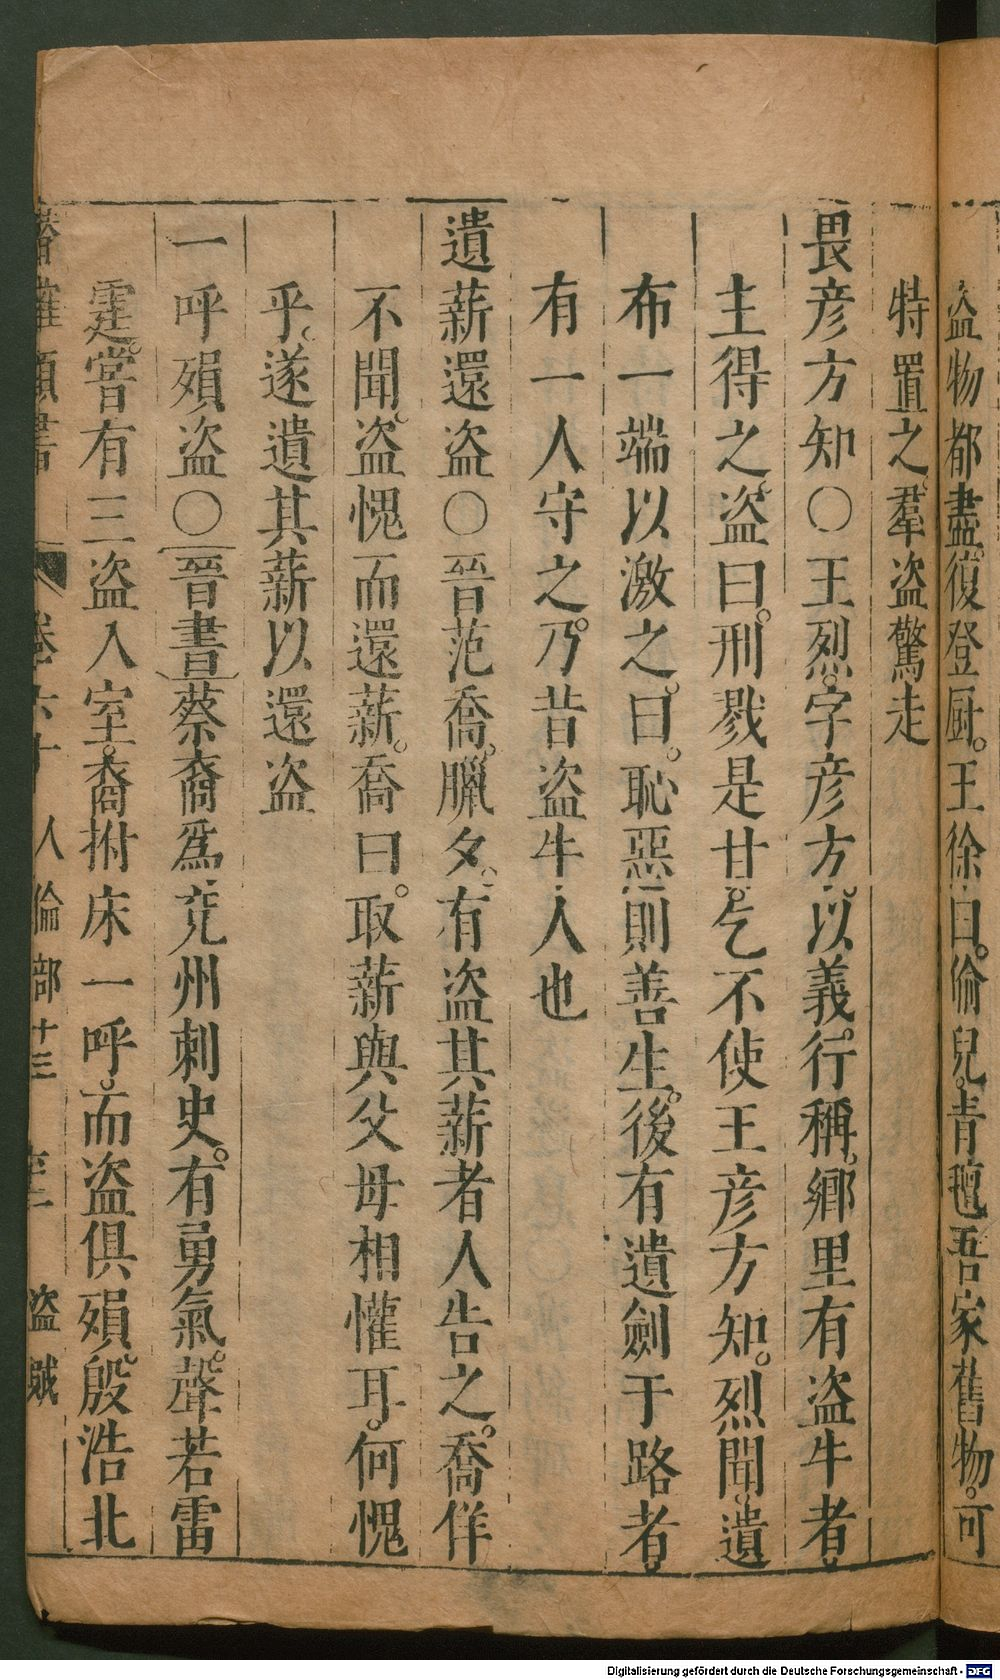 盜物都盡。復登厨。王徐曰。偷兒。青氊吾家舊物。可
特置之。羣盜驚走
畏彥方知〇王烈。字彥方。以義行稱。鄉里有盜牛者
主得之。盜曰。刑戮是甘。乞不使王彥方知。烈聞。遺
布一端以激之。曰。恥惡則善生。後有遺劍于路者
有一人守之。乃昔盜牛人也
遺薪還盜〇晉范喬。臘夕。有盜其薪者人告之。喬佯
不聞。盜愧而還薪。喬曰。取薪與父母相懽耳。何愧
乎。遂遺其薪以還盜
一呼殞盜〇晉書蔡裔爲兗州刺史。有勇氣。聲若雷
霆。嘗有三盜入室。裔拊床一呼。而盜俱殞。殷浩北
卷六十 人倫部十三 盜賊
Digitalisierung gefördert durch die Deutsche Forschungsgemeinschaft - DFG